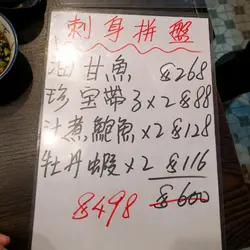 刺身拼盤
油甘魚 $268
珍宝帶子x2 $88
汁煮鮑魚x2 $128
牡丹蝦x2 $116
$600
$498